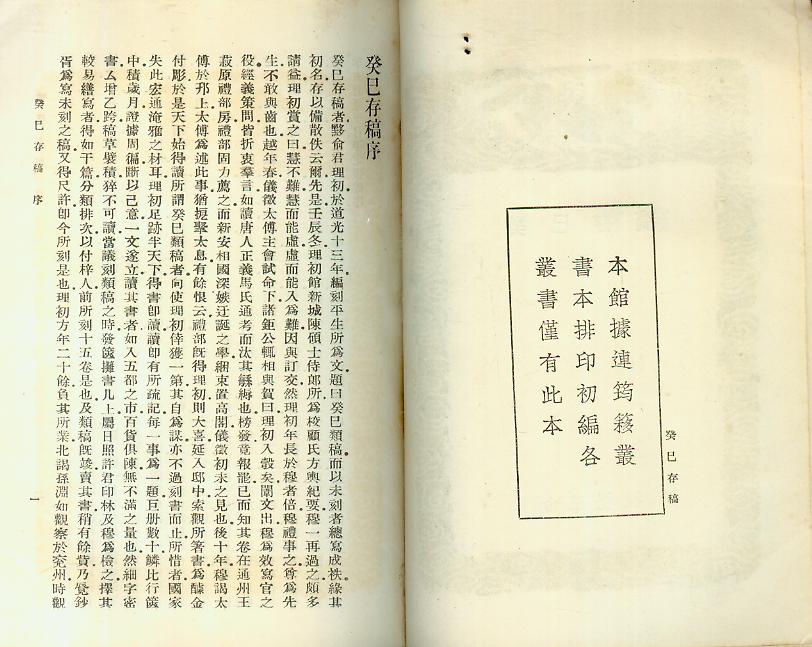 本館據連筠簃叢
書本排印初編各
叢書僅有此本
癸巳存稿
癸巳存稿序
癸巳存稿者黟俞君理初於道光十三年編刻平生所爲文題曰癸巳類稿而以未刻者總寫成袟緣其
初名存以備散佚云爾先是壬辰冬理初館新城陳碩士侍郎所爲校顧氏方輿紀要穆一再過之頗多
請益理初賞之曰慧不難慧而能虛虛而能入爲難因與訂交然理初年長於穆者倍穆禮事之尊爲先
生不敢與齒也越年春儀徵太傅主會試命下諸鉅公輒相與賀曰理初入彀矣闈文出穆爲效寫官之
役經義策問皆折衷羣言如讀唐人正義馬氏通考而汰其緐縟也榜發竟報罷已而知其卷在通州王
菽原禮部房禮部固力薦之而新安相國深嫉迂誕之學綑束置高閣儀徵初未之見也後十年穆謁太
傅於邗上太傅爲述此事猶扼擥太息有餘恨云禮部旣得理初則大喜延入邸中索觀所箸書爲醵金
付彫於是天下始得讀所謂癸巳類稿者向使理初倖獲一第其自爲謀亦不過刻書而止所惜者國家
失此宏通淹雅之材耳理初足跡半天下得書卽讀讀卽有所疏記每一事爲一題巨册數十鱗比行篋
中積歲月證據周徧斷以己意一文遂立讀其書者如入五都之市百貨俱陳無不滿之量也然細字密
書厶增乙跨稿草襞積猝不可讀當議刻類稿之時發篋攤書几上屬日照許君印林及穆爲檢之擇其
較易繕寫者得如干篇分類排次以付梓人前所刻十五卷是也及類稿旣竣賣其書稍有餘貲乃覓鈔
胥爲寫未刻之稿又得尺許卽今所刻是也理初方年二十餘負其所業北謁孫淵如觀察於兗州時觀
癸巳存稿 序 一